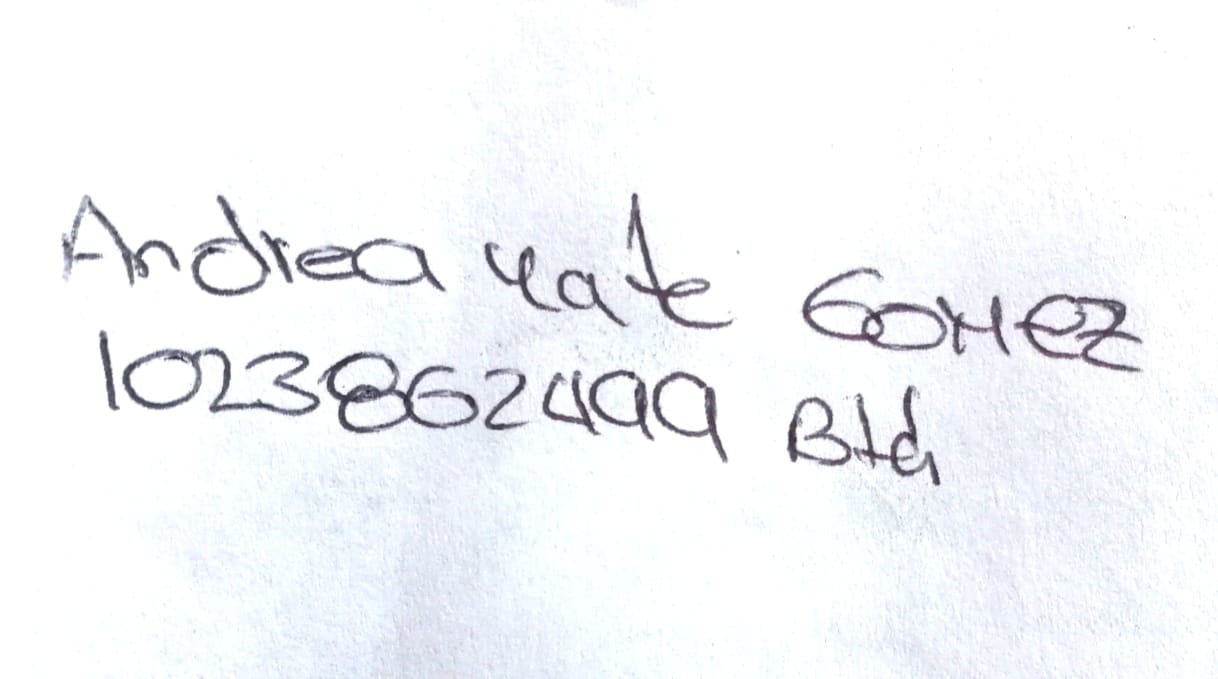 Andrea Yate Gomez
1023862499 Bta